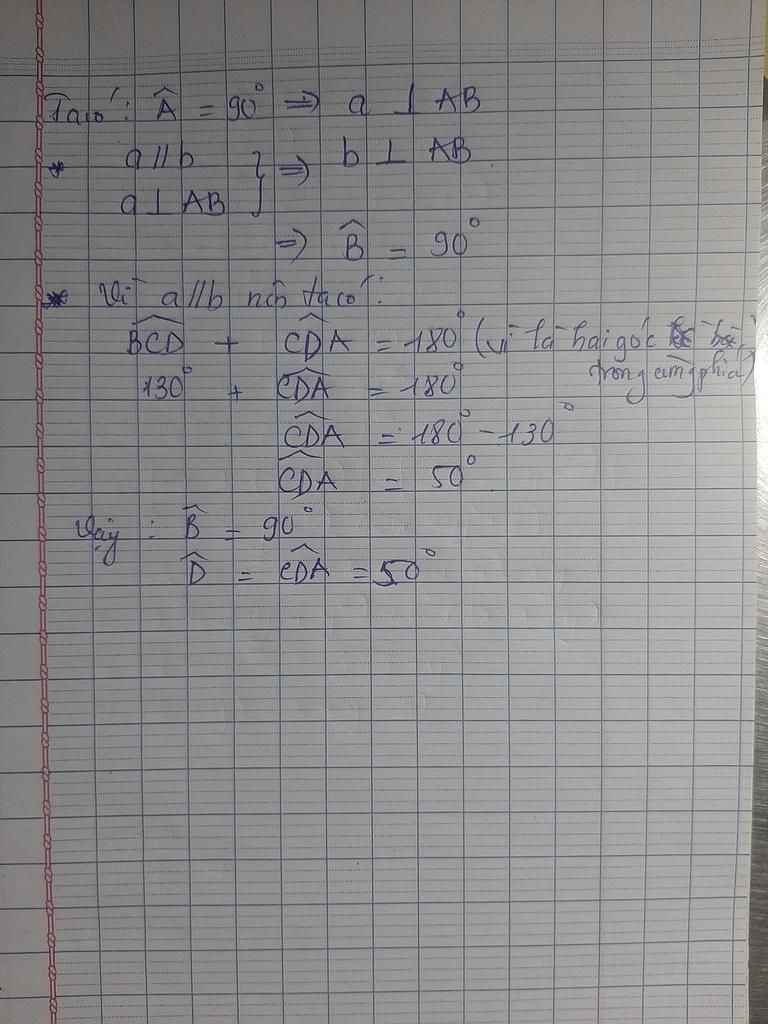 Ta có: Â = 90° => a ⊥ AB
* a // b } => b ⊥ AB
a ⊥ AB
=> B̂ = 90°
* Vì a // b nên ta có:
BCD̂ + CDÂ = 180° (vì là hai góc
trong cùng phía)
130° + CDÂ = 180°
CDÂ = 180° - 130°
CDÂ = 50°
Vậy : B̂ = 90°
D̂ = CDÂ = 50°